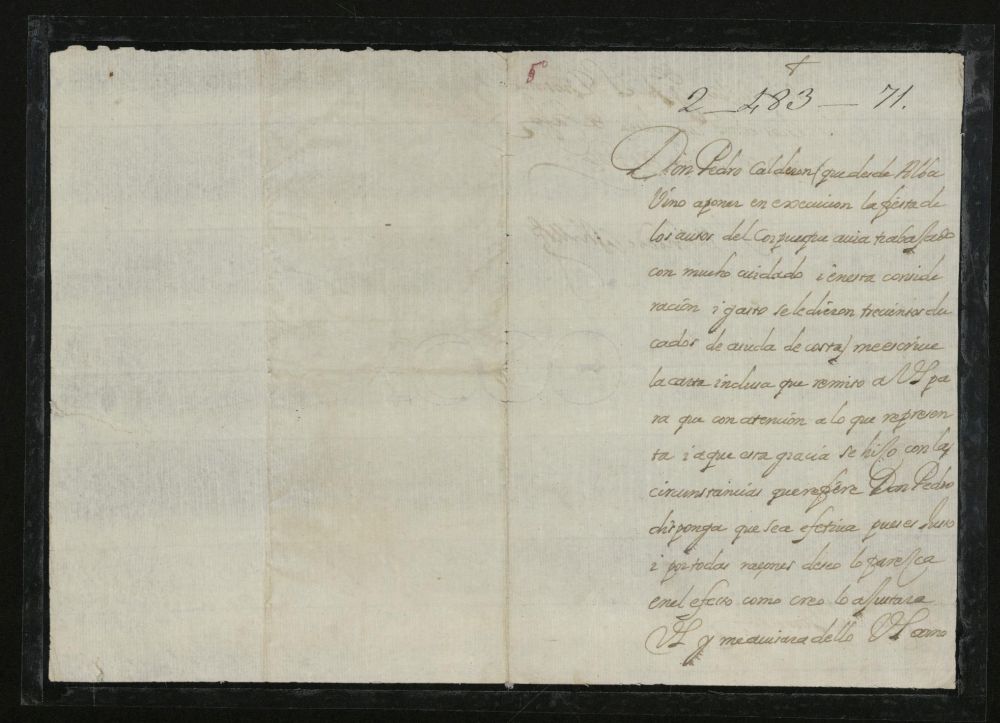 5º
2 - 483 - 71.
Don Pedro Calderon (que desde Alba
vino aponer en execuicion la fiesta de
los autos del Corpus que avia trabassado
con mucho cuidado i enesta conside
ración i gasto se le dieron trecientos du
cados de aiuda de costa) me escrive
la carta inclusa que remito a VS pa
ra que con atención a lo que represen
ta i aque esta gracia se hiço con las
circunstancias que refiere Don Pedro
disponga que sea efetiva pues es justo
i por todas raçones deseo lo paresca
en el efecto como creo lo assuntara
VS y me avisara dello VS como